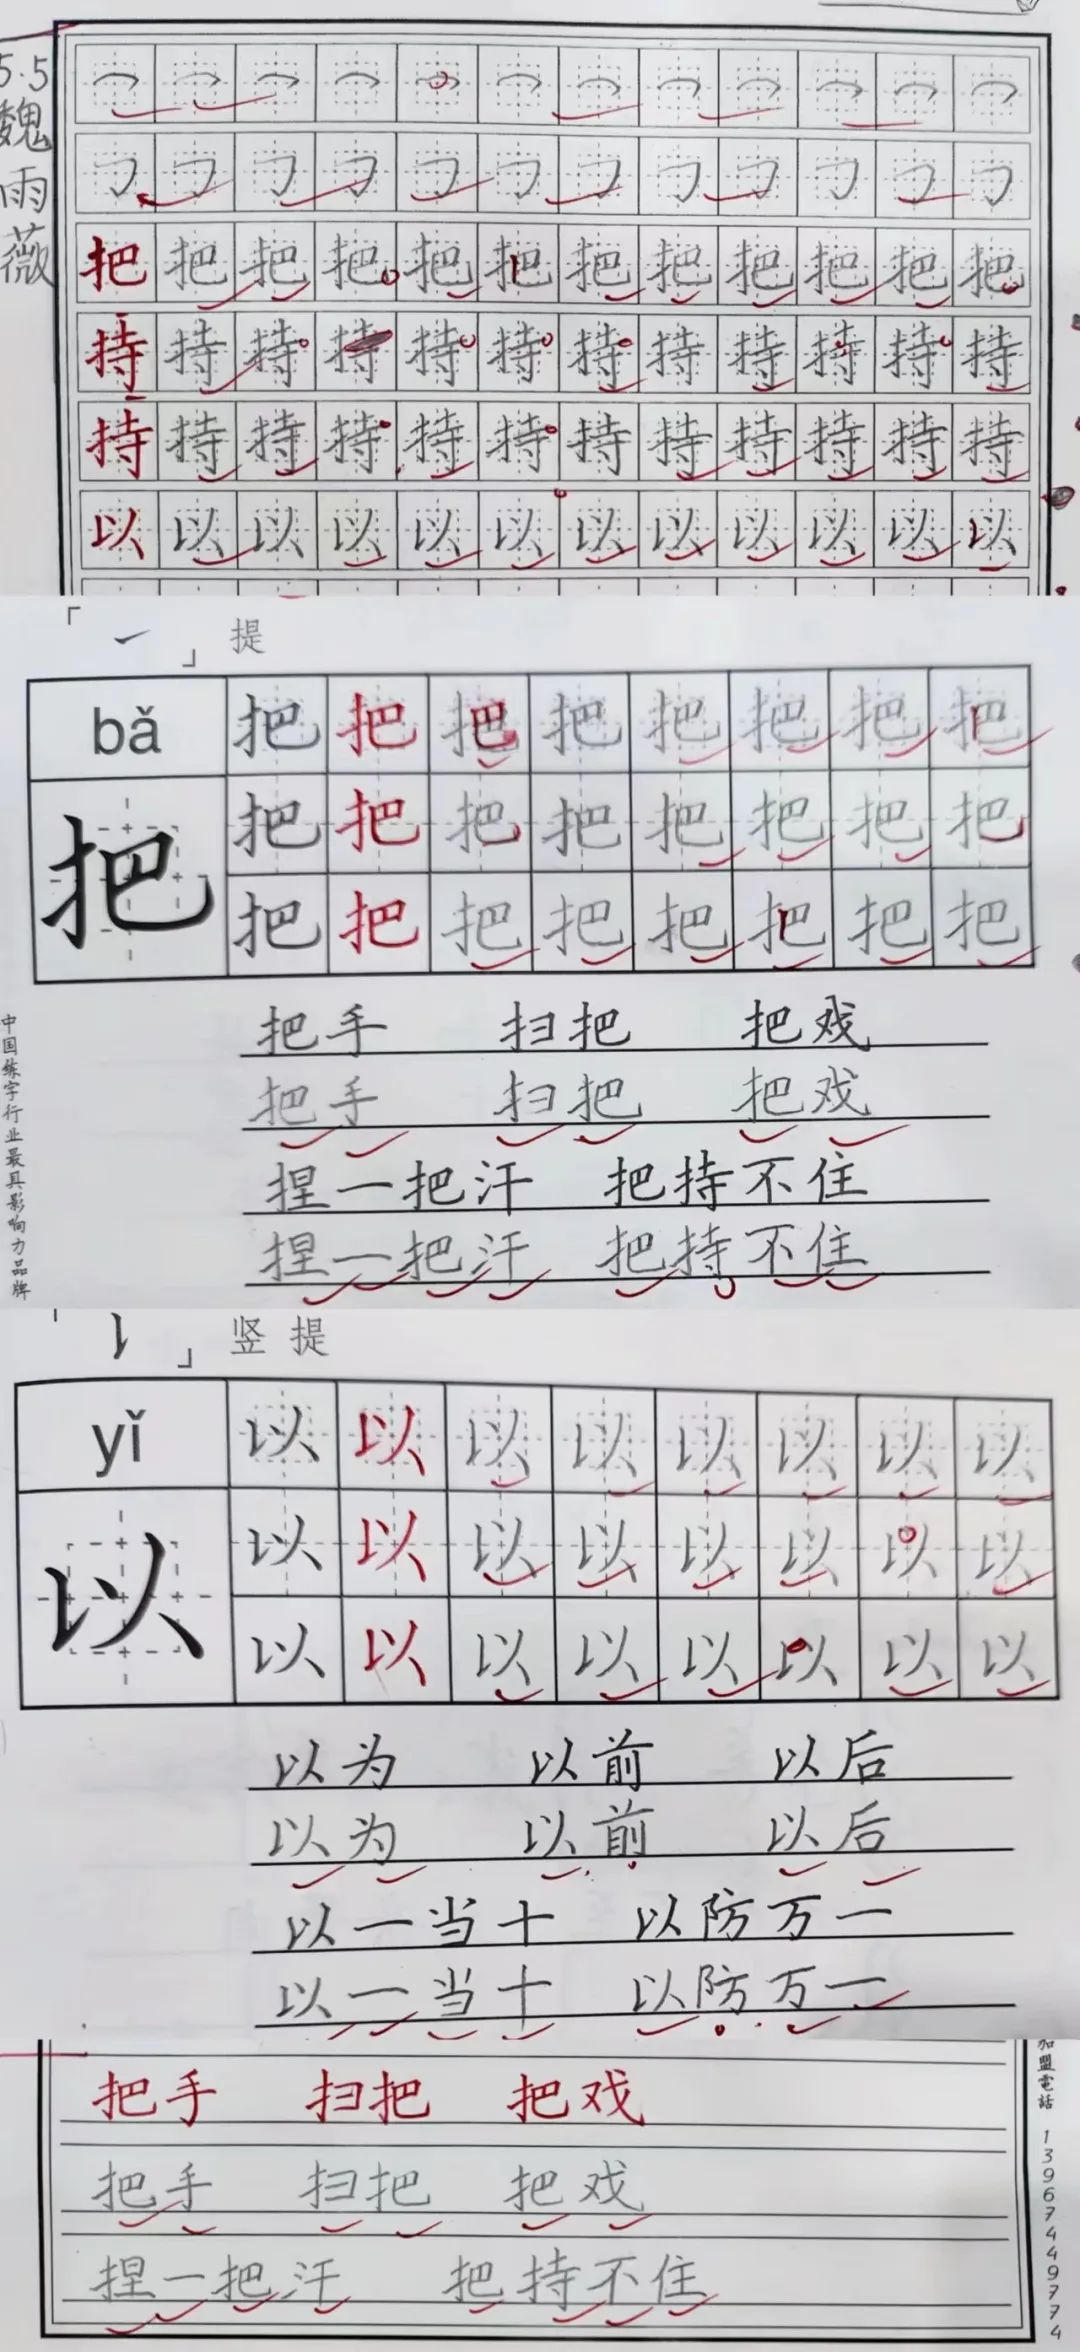 5.5
魏雨薇
把把把把把把把把把把把把
持持持持持持持持持持持持
持持持持持持持持持持持持
以以以以以以以以以以以以
「㇀」提
bǎ
把把把把把把把把
把
把把把把把把把把
把把把把把把把把
把手 扫把 把戏
把手 扫把 把戏
捏一把汗 把持不住
捏一把汗 把持不住
中国练字行业最具影响力品牌
「㇙」竖提
yǐ
以以以以以以以以
以
以以以以以以以以
以以以以以以以以
以为 以前 以后
以为 以前 以后
以一当十 以防万一
以一当十 以防万一
把手 扫把 把戏
把手 扫把 把戏
捏一把汗 把持不住
加盟電話 13967449774